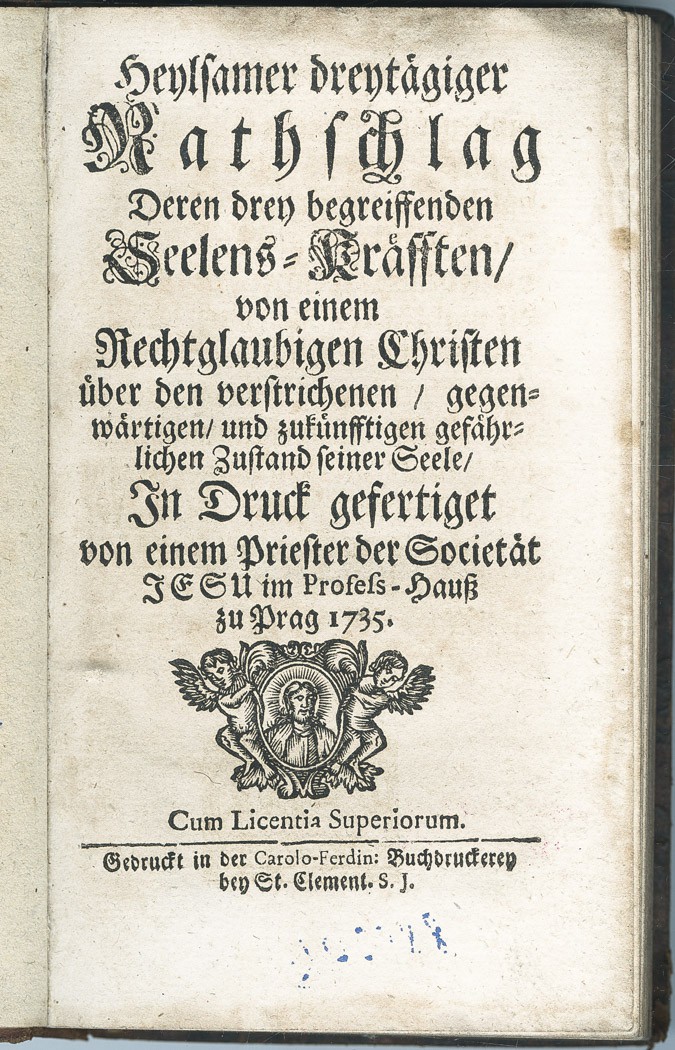 Heylsamer dreytägiger
Rathschlag
Deren drey begreiffenden
Seelens-Kräfften/
von einem
Rechtglaubigen Christen
über den verstrichenen / gegen-
wärtigen/ und zukünfftigen gefähr-
lichen Zustand seiner Seele/
In Druck gefertiget
von einem Priester der Societät
JESU im Profess-Hauß
zu Prag 1735.
Cum Licentiâ Superiorum.
Gedruckt in der Carolo-Ferdin: Buchdruckerey
bey St. Clement. S. J.